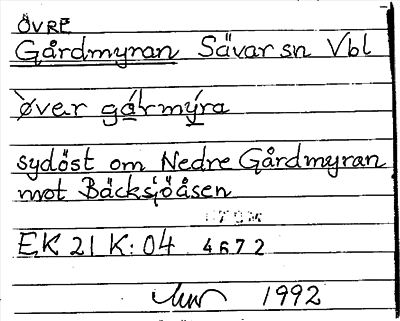 ÖVRE
Gårdmyran Sävar sn Vbl
òver gármýra
sydöst om Nedre Gårdmyran
mot Bäcksjöåsen
EK 21 K: 04 4672
1992